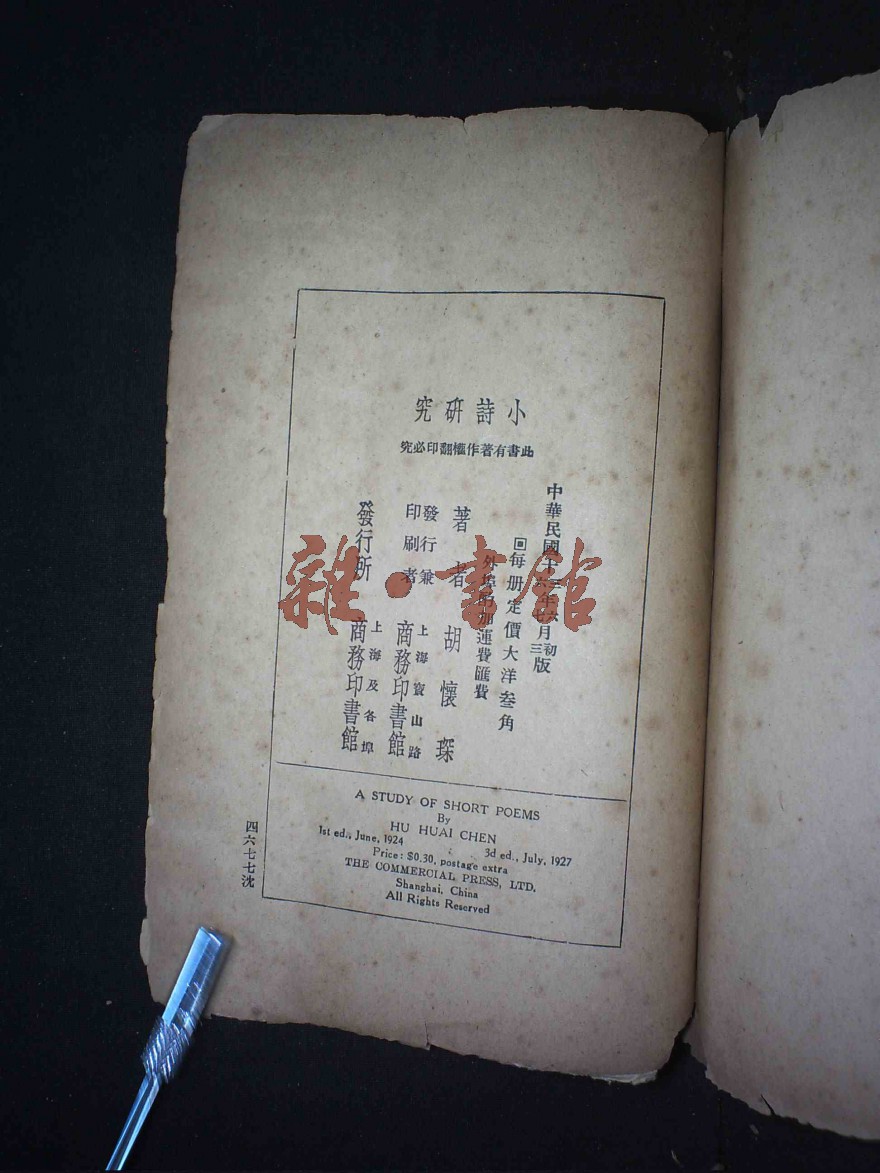 小詩研究
此書有著作權翻印必究
中華民國十三年六月初版
十六年七月三版
回每册定價大洋叁角
外埠酌加運費匯費
著者 胡懷琛
發行兼印刷者 上海寶山路 商務印書館
發行所 上海及各埠 商務印書館
A STUDY OF SHORT POEMS
By
HU HUAI CHEN
1st ed., June, 1924 3d ed., July, 1927
Price: $0.30, postage extra
THE COMMERCIAL PRESS, LTD.
Shanghai, China
All Rights Reserved
四六七七沈
雜·書館